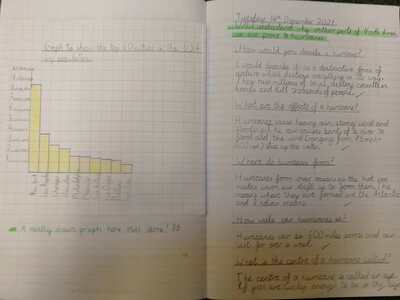 Graph to show the top 10 cities in the U.S.A
by population.
New York
Los Angeles
Chicago
Houston
Philadelphia
Phoenix
San Antonio
San Diego
Dallas
A neatly drawn graph here well done!
Tuesday 14th December 2021
understand why northern parts of North
are prone to hurricanes.
How would you describe a hurricane?
I would describe it as a destructive force of
nature which destroys everything in its way.
They ruin millions of towns, destroy countless
homes and kill thousands of people.
What are the effects of a hurricane?
Hurricanes cause heavy rain, strong wind and
flooding. The air causes
flood and the wind (ranging from
up the water.
Where do hurricanes form?
Hurricanes form over oceans as the hot sea
makes warm air drift up to form them, this
means where they are formed are the Atlantic
and Indian oceans.
How wide can hurricanes be?
Hurricanes can be 600 miles across and can
last for over a week.
What is the centre of a hurricane called?
The centre of a hurricane is called an eye.
If you are lucky enough to be in the eye